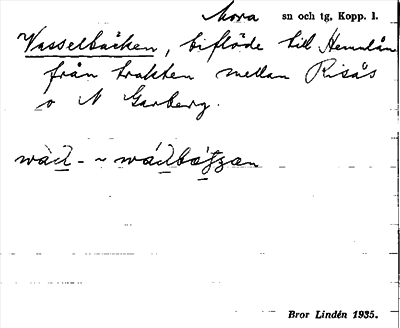 Mora sn och tg, Kopp. l.
Vasselbäcken, biflöde till Hemulån
från trakten mellan Risås
o N Garberg.
Bror Lindén 1935.